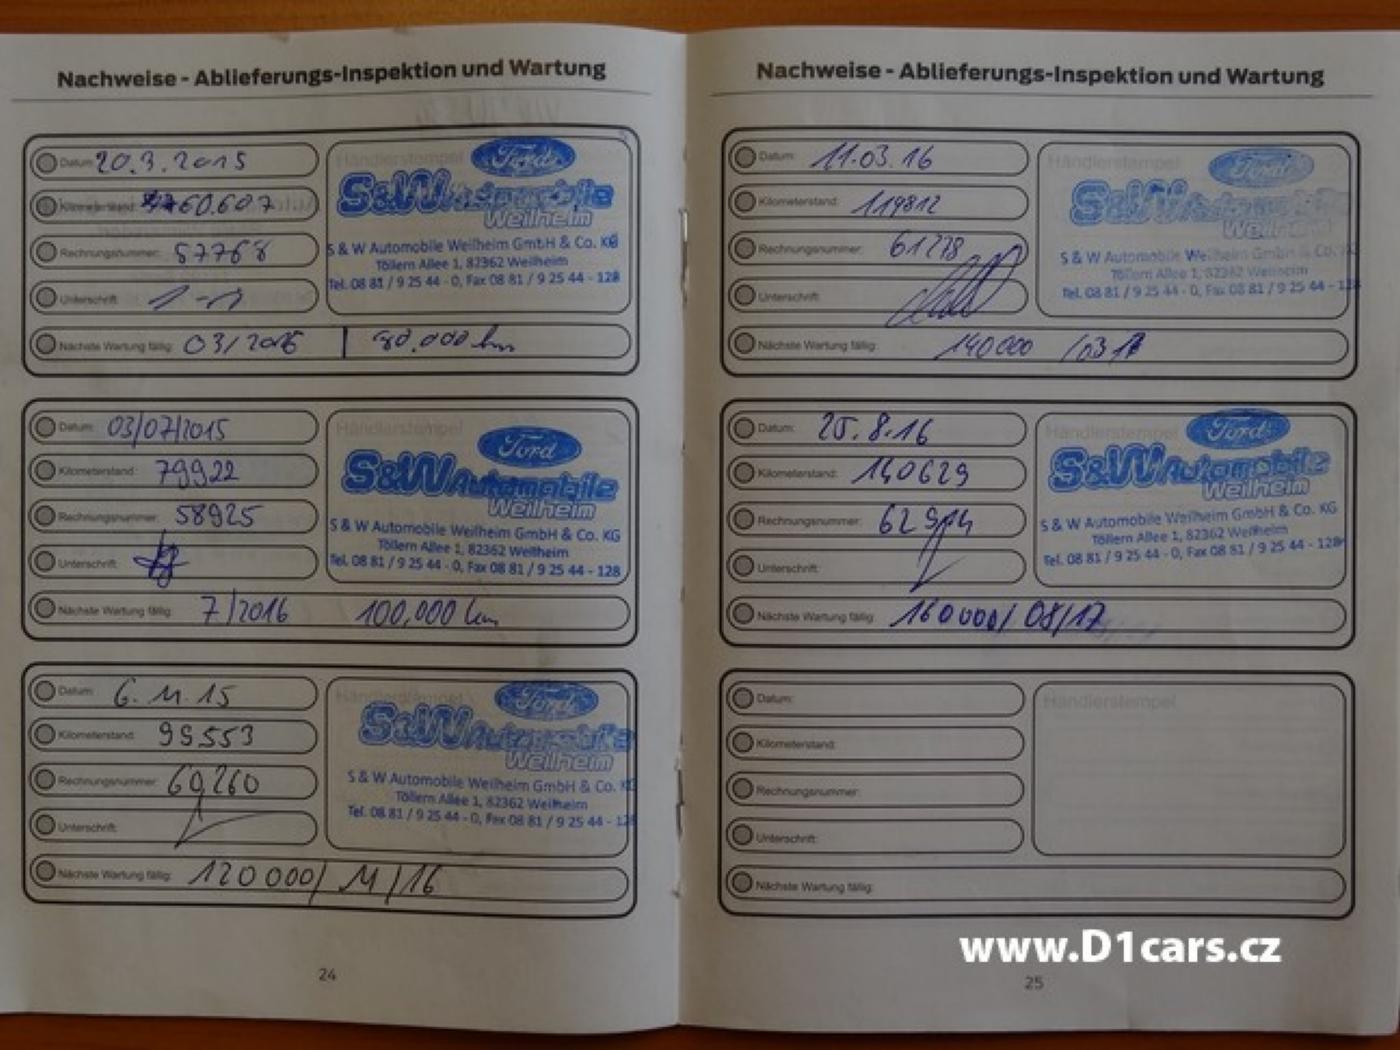 Nachweise - Ablieferungs-Inspektion und Wartung
Datum: 20.3.2015
Kilometerstand: 60.607
Rechnungsnummer: 57768
Unterschrift:
Nächste Wartung fällig: 03/2016 | 80.000 km
Händlerstempel
Ford
S&W Automobile
Weilheim
S & W Automobile Weilheim GmbH & Co. KG
Töllern Allee 1, 82362 Weilheim
Tel. 08 81 / 9 25 44 - 0, Fax 08 81 / 9 25 44 - 128
Datum: 03/07/2015
Kilometerstand: 79922
Rechnungsnummer: 58925
Unterschrift:
Nächste Wartung fällig: 7/2016 100,000 km
Händlerstempel
Ford
S&W Automobile
Weilheim
S & W Automobile Weilheim GmbH & Co. KG
Töllern Allee 1, 82362 Weilheim
Tel. 08 81 / 9 25 44 - 0, Fax 08 81 / 9 25 44 - 128
Datum: 6.11.15
Kilometerstand: 99553
Rechnungsnummer: 60260
Unterschrift:
Nächste Wartung fällig: 120000/ 11/16
Händlerstempel
Ford
S&W Automobile
Weilheim
S & W Automobile Weilheim GmbH & Co. KG
Töllern Allee 1, 82362 Weilheim
Tel. 08 81 / 9 25 44 - 0, Fax 08 81 / 9 25 44 - 12
24
Nachweise - Ablieferungs-Inspektion und Wartung
Datum: 11.03.16
Kilometerstand: 119812
Rechnungsnummer: 61278
Unterschrift:
Nächste Wartung fällig: 140000 /03 17
Händlerstempel
Ford
S&W Automobile
Weilheim
S & W Automobile Weilheim GmbH & Co. KG
Töllern Allee 1, 82362 Weilheim
Tel. 08 81 / 9 25 44 - 0, Fax 08 81 / 9 25 44 - 128
Datum: 25.8.16
Kilometerstand: 140629
Rechnungsnummer:
Unterschrift:
Nächste Wartung fällig: 160000/ 08/17
Händlerstempel
Ford
S&W Automobile
Weilheim
S & W Automobile Weilheim GmbH & Co. KG
Töllern Allee 1, 82362 Weilheim
Tel. 08 81 / 9 25 44 - 0, Fax 08 81 / 9 25 44 - 128
Datum:
Kilometerstand:
Rechnungsnummer:
Unterschrift:
Nächste Wartung fällig:
Händlerstempel
www.D1cars.cz
25